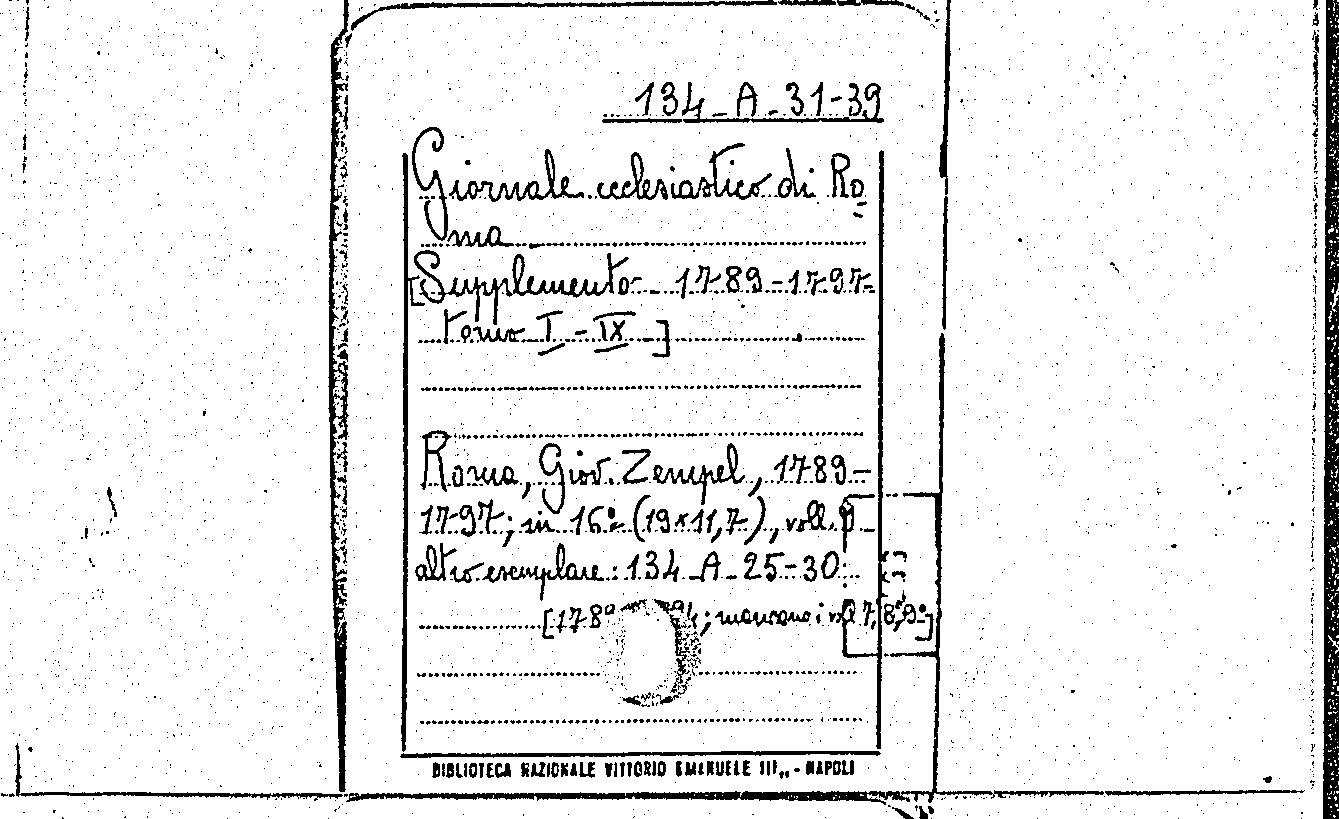 134_A_31-39
Giornale ecclesiastico di Ro
ma
[Supplemento - 1789-1797-
tomo I - IX ]
Roma, Giov. Zempel, 1789-
1797; in 16° (19x11,7), voll. 9
altro esemplare: 134_A_25-30
[1789 94; mancano i voll 7, 8, 9°]
BIBLIOTECA NAZIONALE VITTORIO EMANUELE III,, - NAPOLI